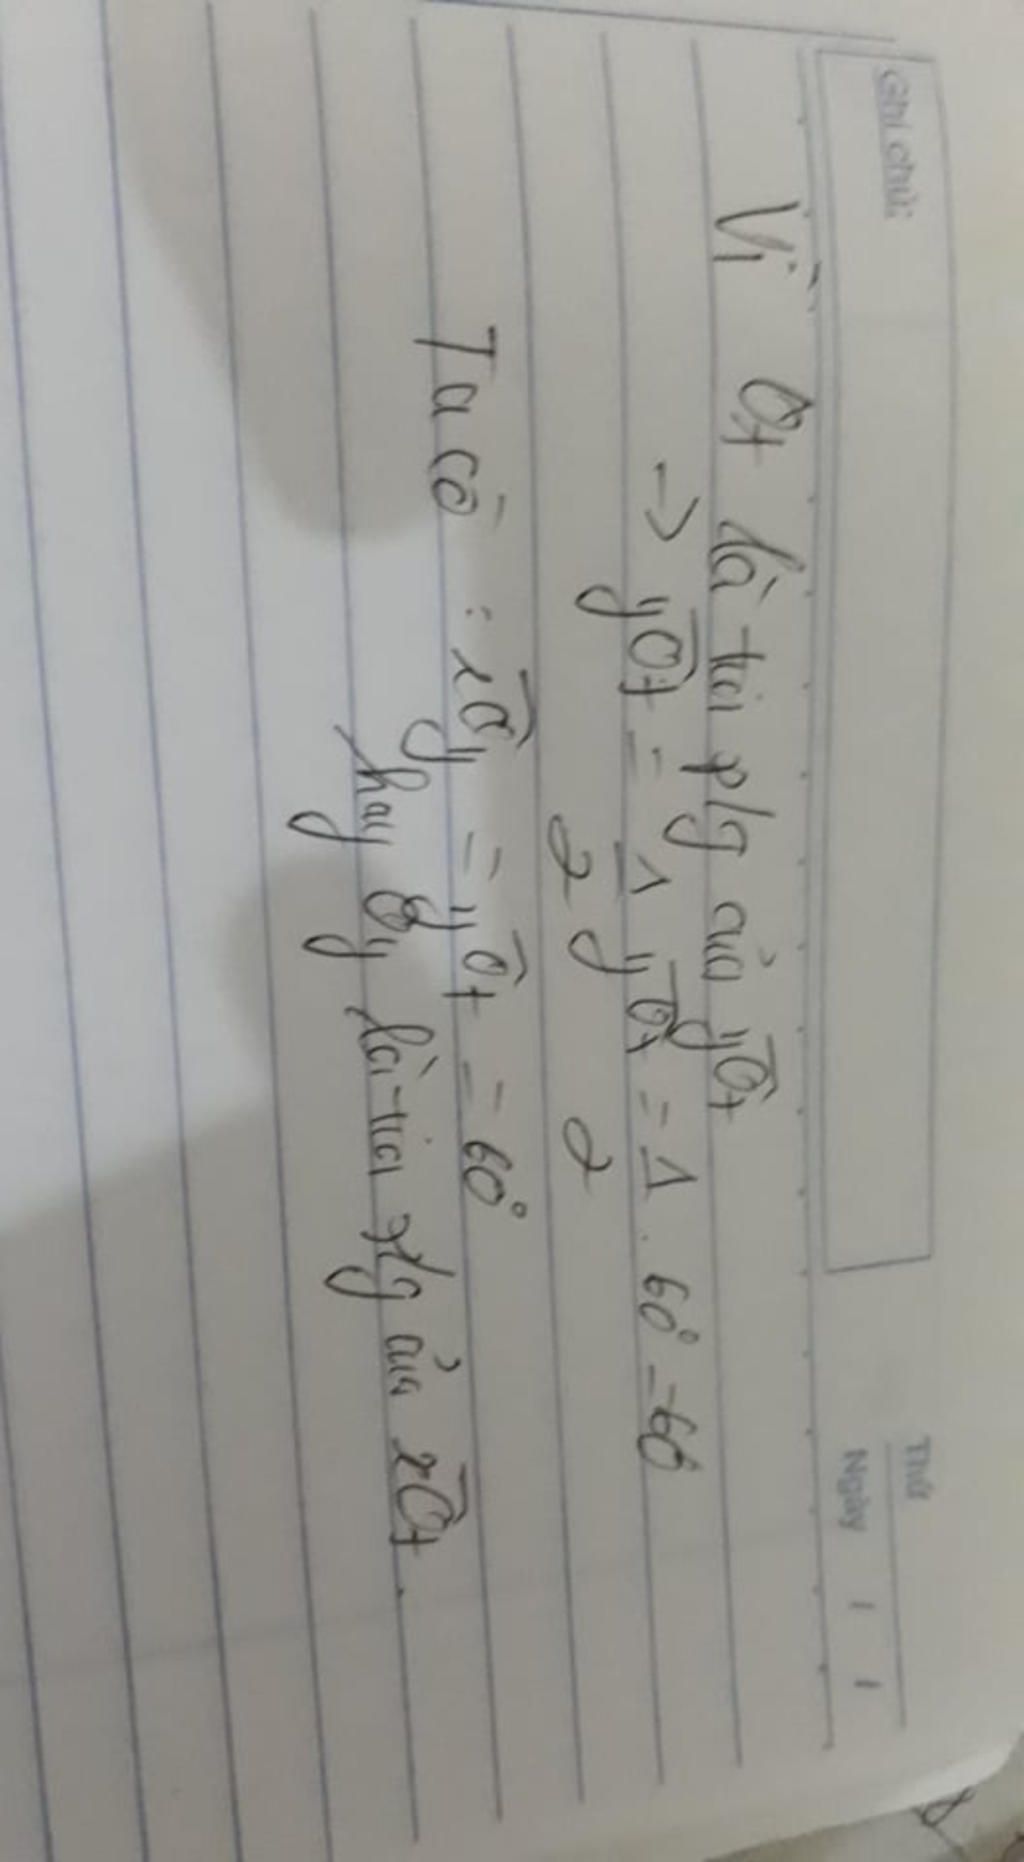 Ghi chú:
Thứ
Ngày / /
Vì Ot là tia p/g của yOt
→ yOt = 1/2 yOx = 1/2 . 60° = 60
Ta có : zOy = yOt = 60°
hay Oy là tia p/g của zOt.